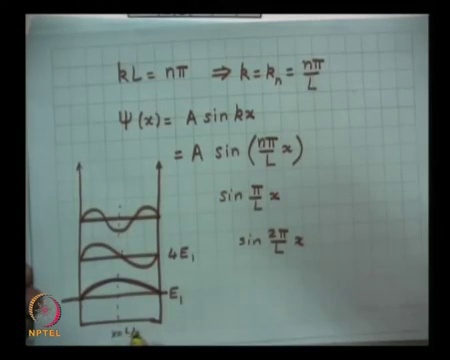 kL = nπ ⇒ k = kₙ = nπ/L
Ψ(x) = A sin kx
= A sin (nπ/L x)
sin π/L x
sin 2π/L x
4E₁
E₁
x=L/2
NPTEL